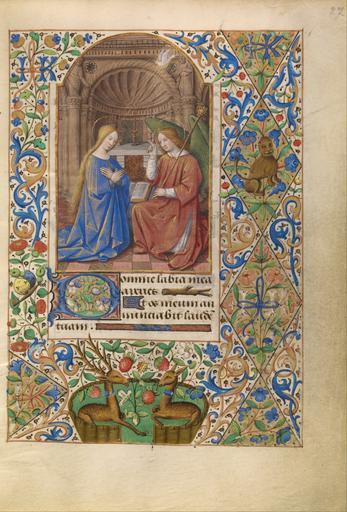 27
omine labia mea
aperies
Et os meum an
nunciabit laude
tuam.